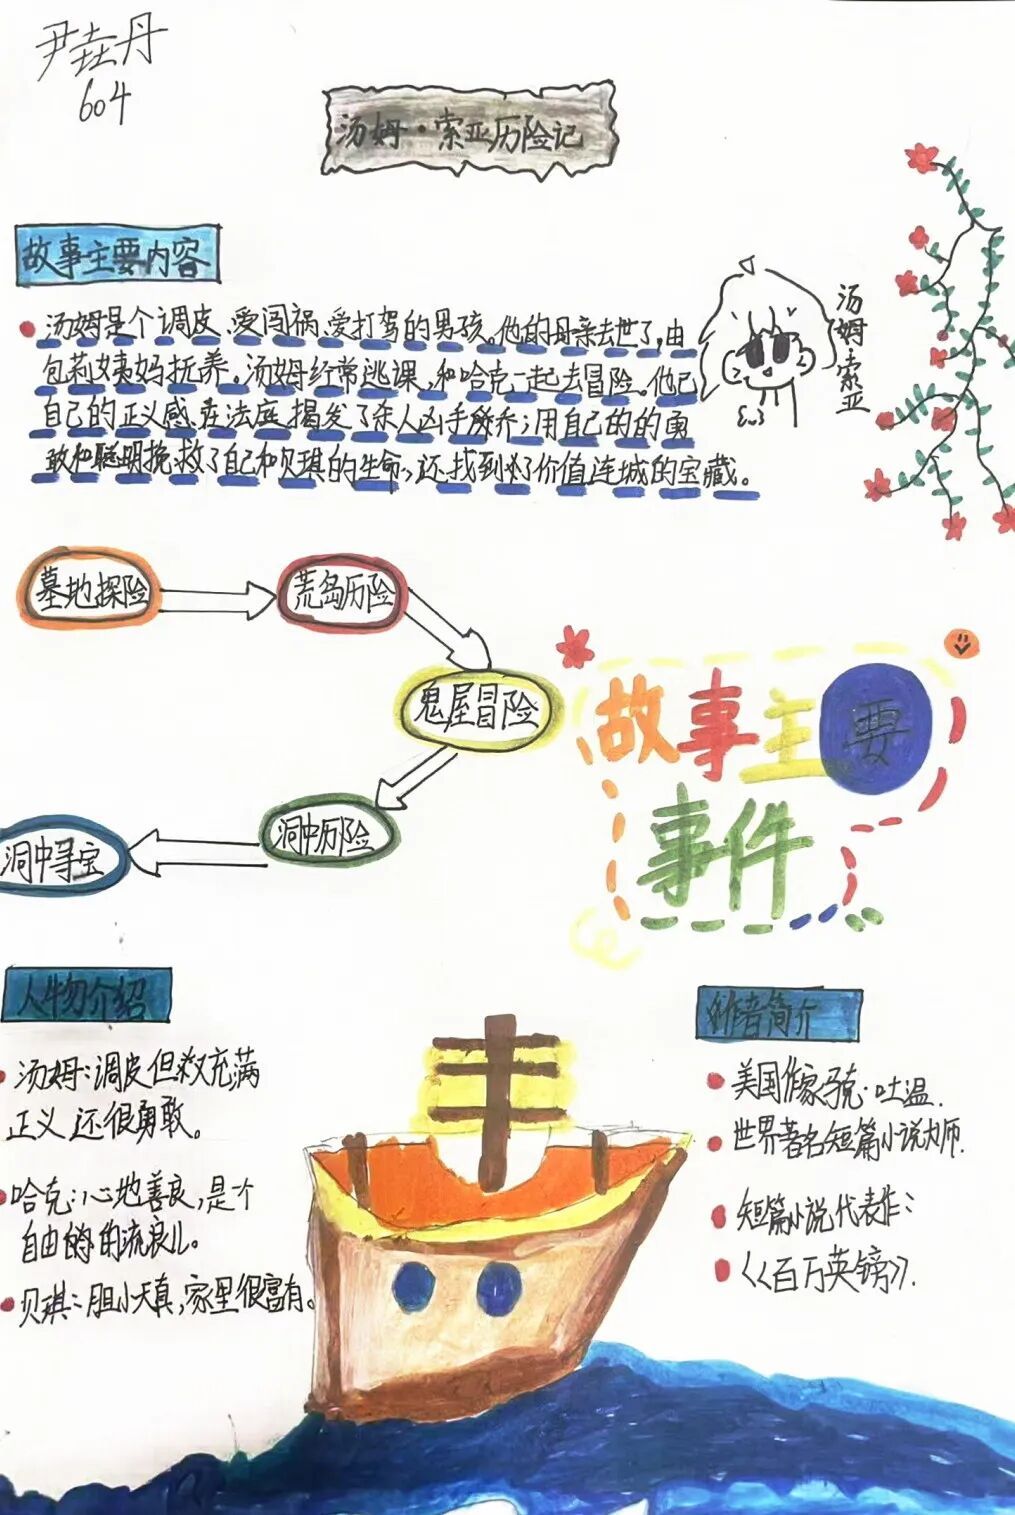 尹垚丹
604
汤姆·索亚历险记
故事主要内容
汤姆是个调皮、爱闯祸、爱打驾的男孩。他的母亲去世了,由
包莉姨妈抚养。汤姆经常逃课,和哈克一起去冒险。他已
自己的正义感,在法庭揭发了杀人凶手 乔;用自己的的勇
敢和聪明挽救了自己和贝琪的生命,还找到了价值连城的宝藏。
汤姆索亚
墓地探险
荒岛历险
鬼屋冒险
洞中历险
洞中寻宝
故事主要
事件
人物介绍
汤姆:调皮但又充满
正义 还很勇敢。
哈克:心地善良,是个
自由的的流浪儿。
贝琪:胆小天真,家里很富有。
作者简介
美国作家马克·吐温.
世界著名短篇小说大师.
短篇小说代表作:
《百万英镑》.